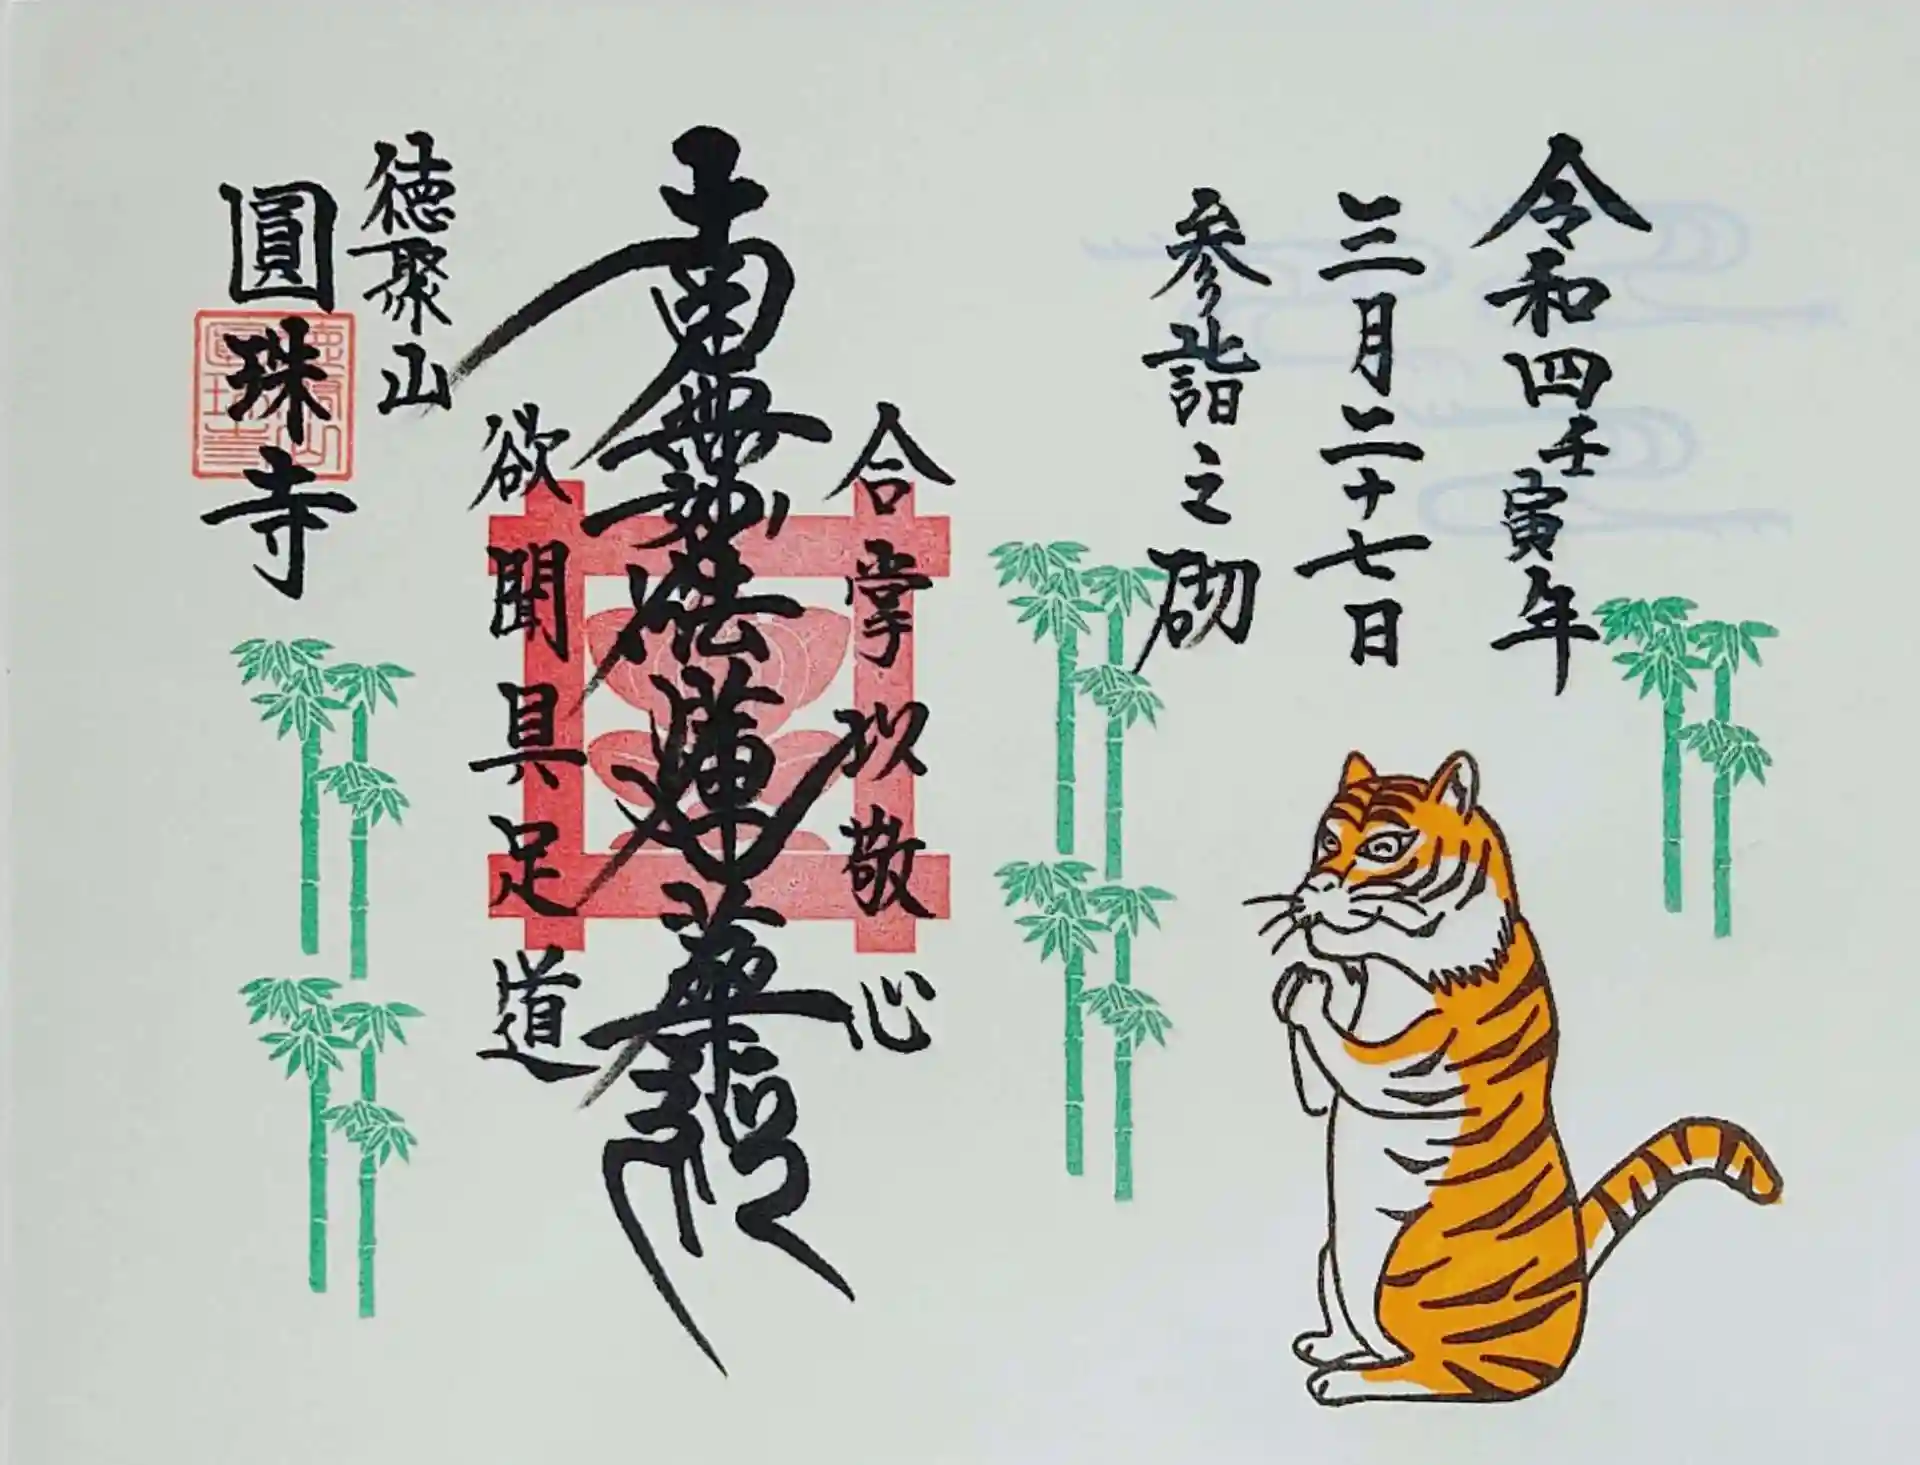 令和四壬寅年
三月二十七日
参詣之砌
合掌以敬心
南無妙法蓮華経
欲聞具足道
徳聚山
圓珠寺